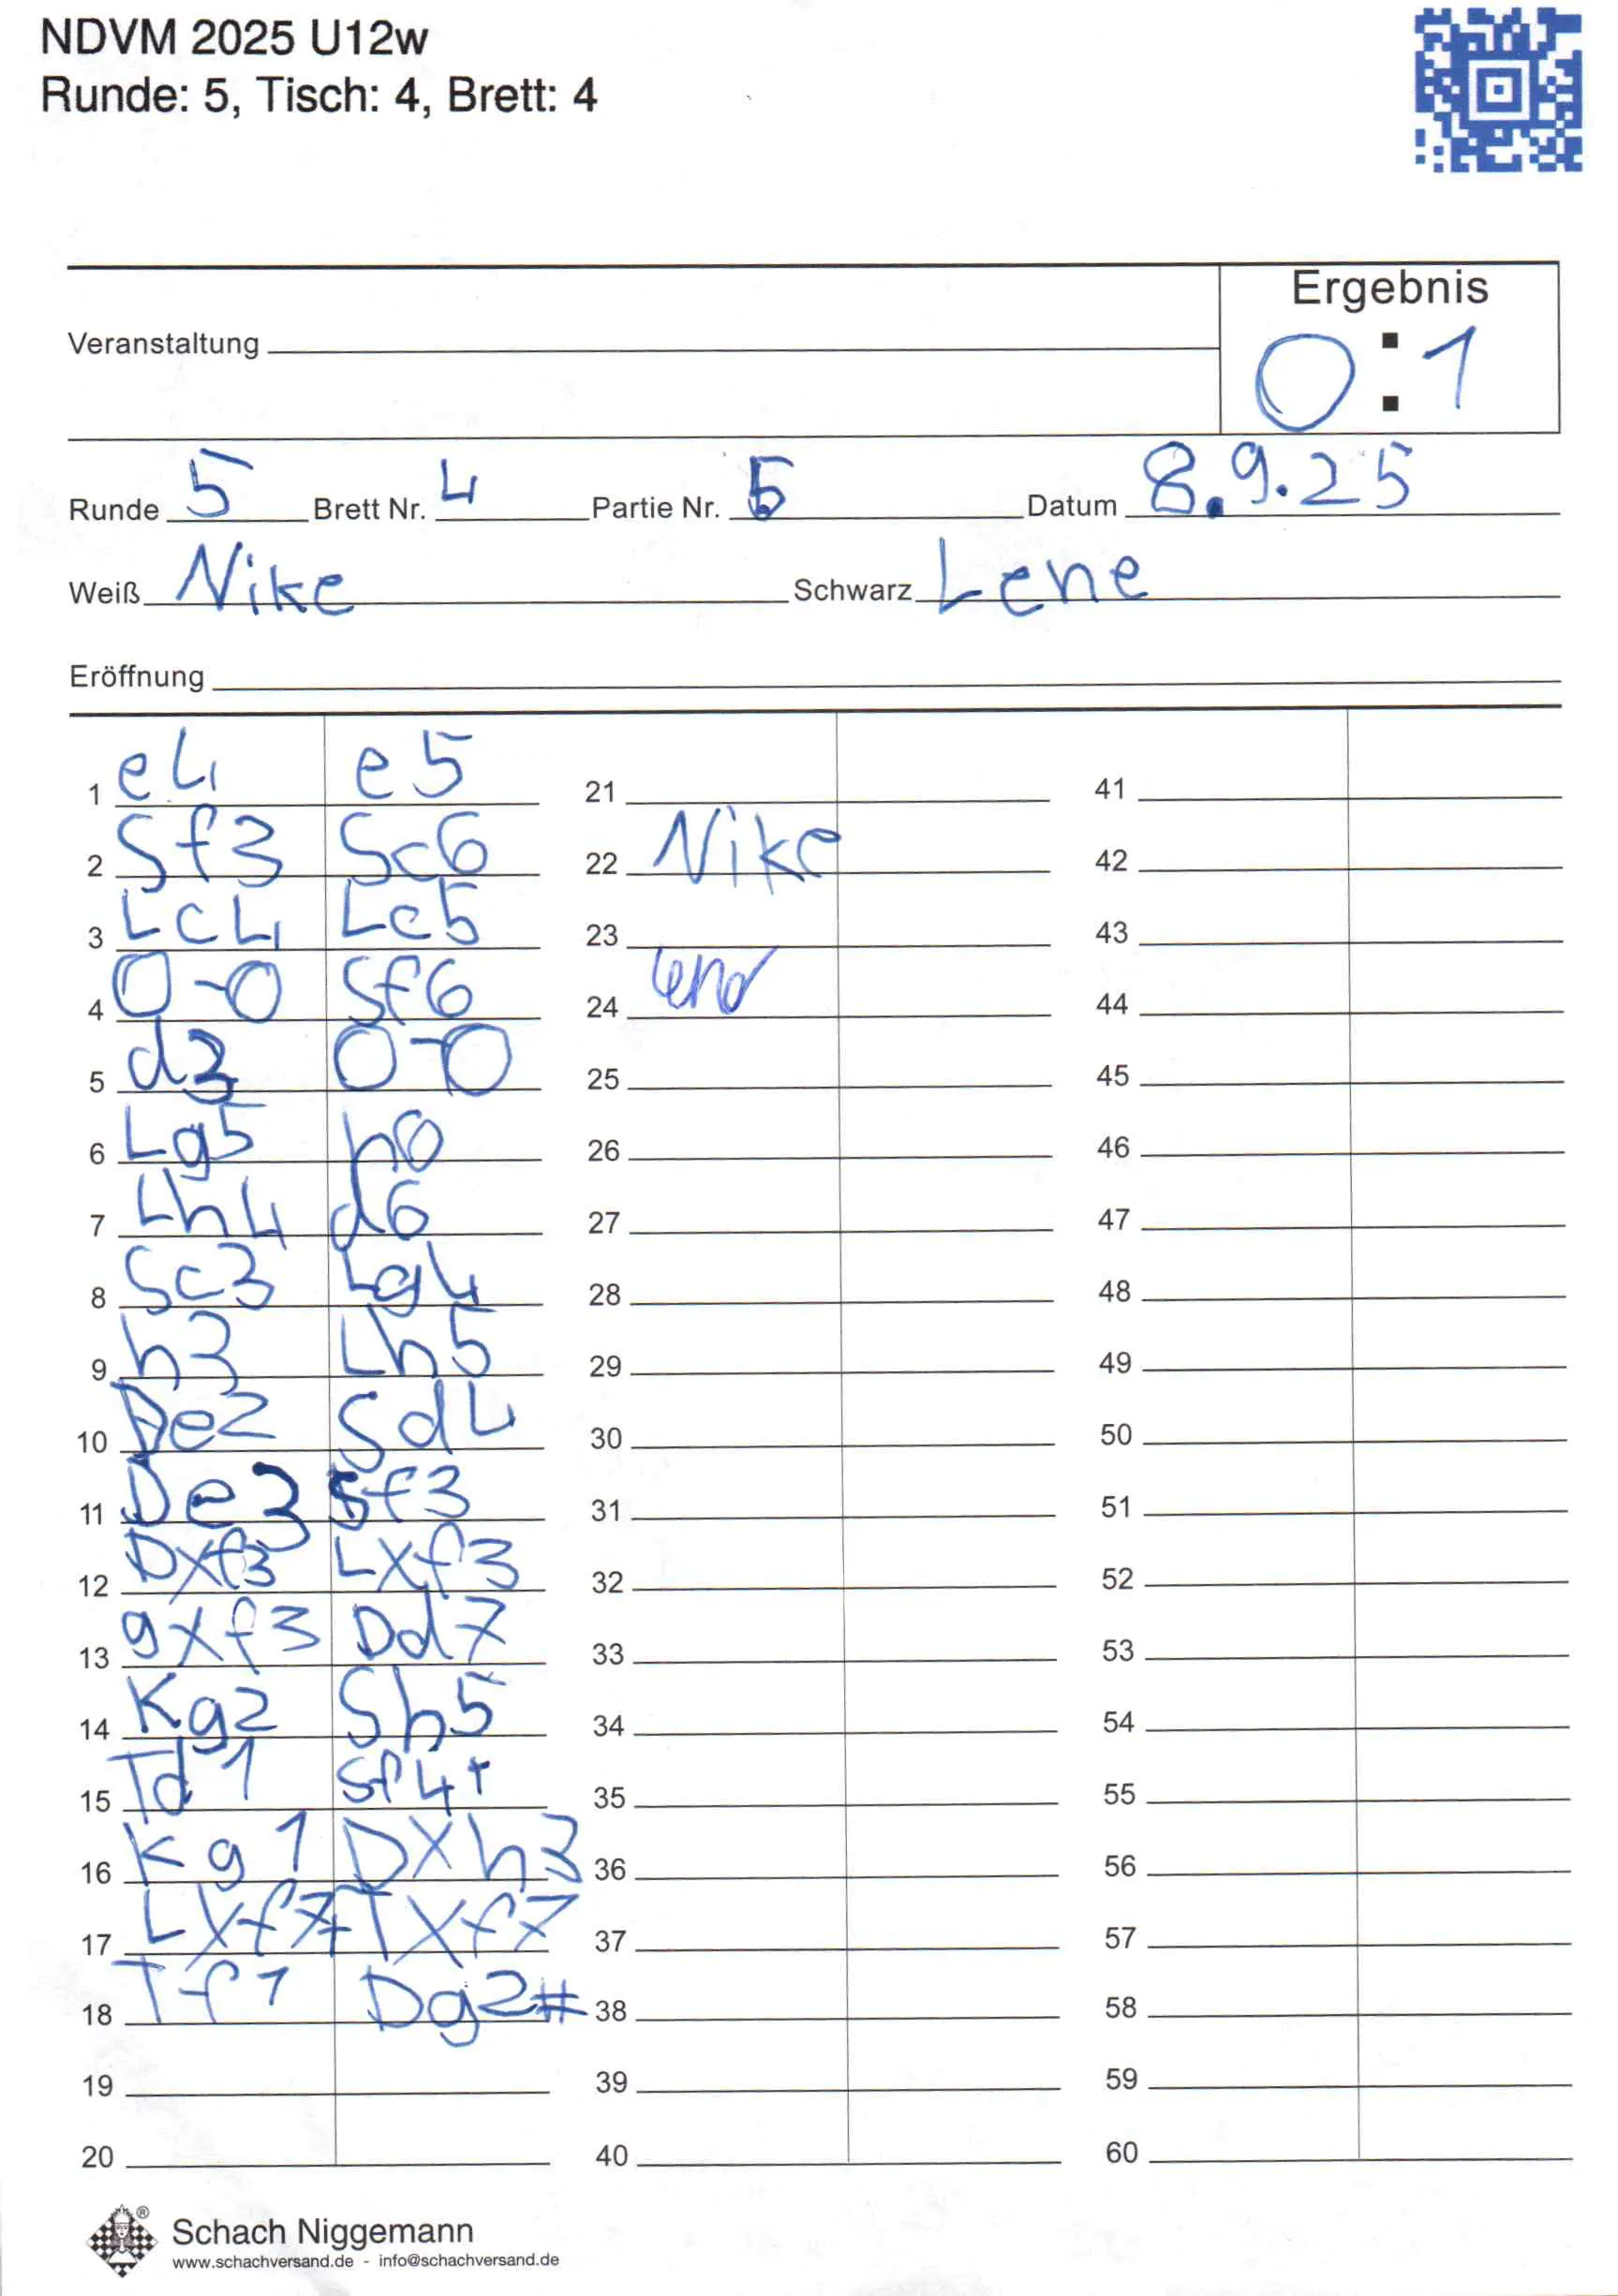 NDVM 2025 U12w
Runde: 5, Tisch: 4, Brett: 4
Ergebnis
Veranstaltung
0:1
Runde 5 Brett Nr. 4 Partie Nr. 5 Datum 8.9.25
Weiß Nike Schwarz Lene
Eröffnung
1 e4 e5 21 41
2 Sf3 Sc6 22 Nike 42
3 Lc4 Lc5 23 43
4 0-0 Sf6 24 44
5 d3 0-0 25 45
6 Lg5 h6 26 46
7 Lh4 d6 27 47
8 Sc3 Lg4 28 48
9 h3 Lh5 29 49
10 De2 Sd4 30 50
11 De3 Sf3 31 51
12 Dxf3 Lxf3 32 52
13 gxf3 Dd7 33 53
14 Kg2 Sh5 34 54
15 Td1 Sf4+ 35 55
16 Kg1 Dxh3 36 56
17 Lxf7+ Txf7 37 57
18 Tf1 Dg2# 38 58
19 39 59
20 40 60
®
Schach Niggemann
www.schachversand.de - info@schachversand.de